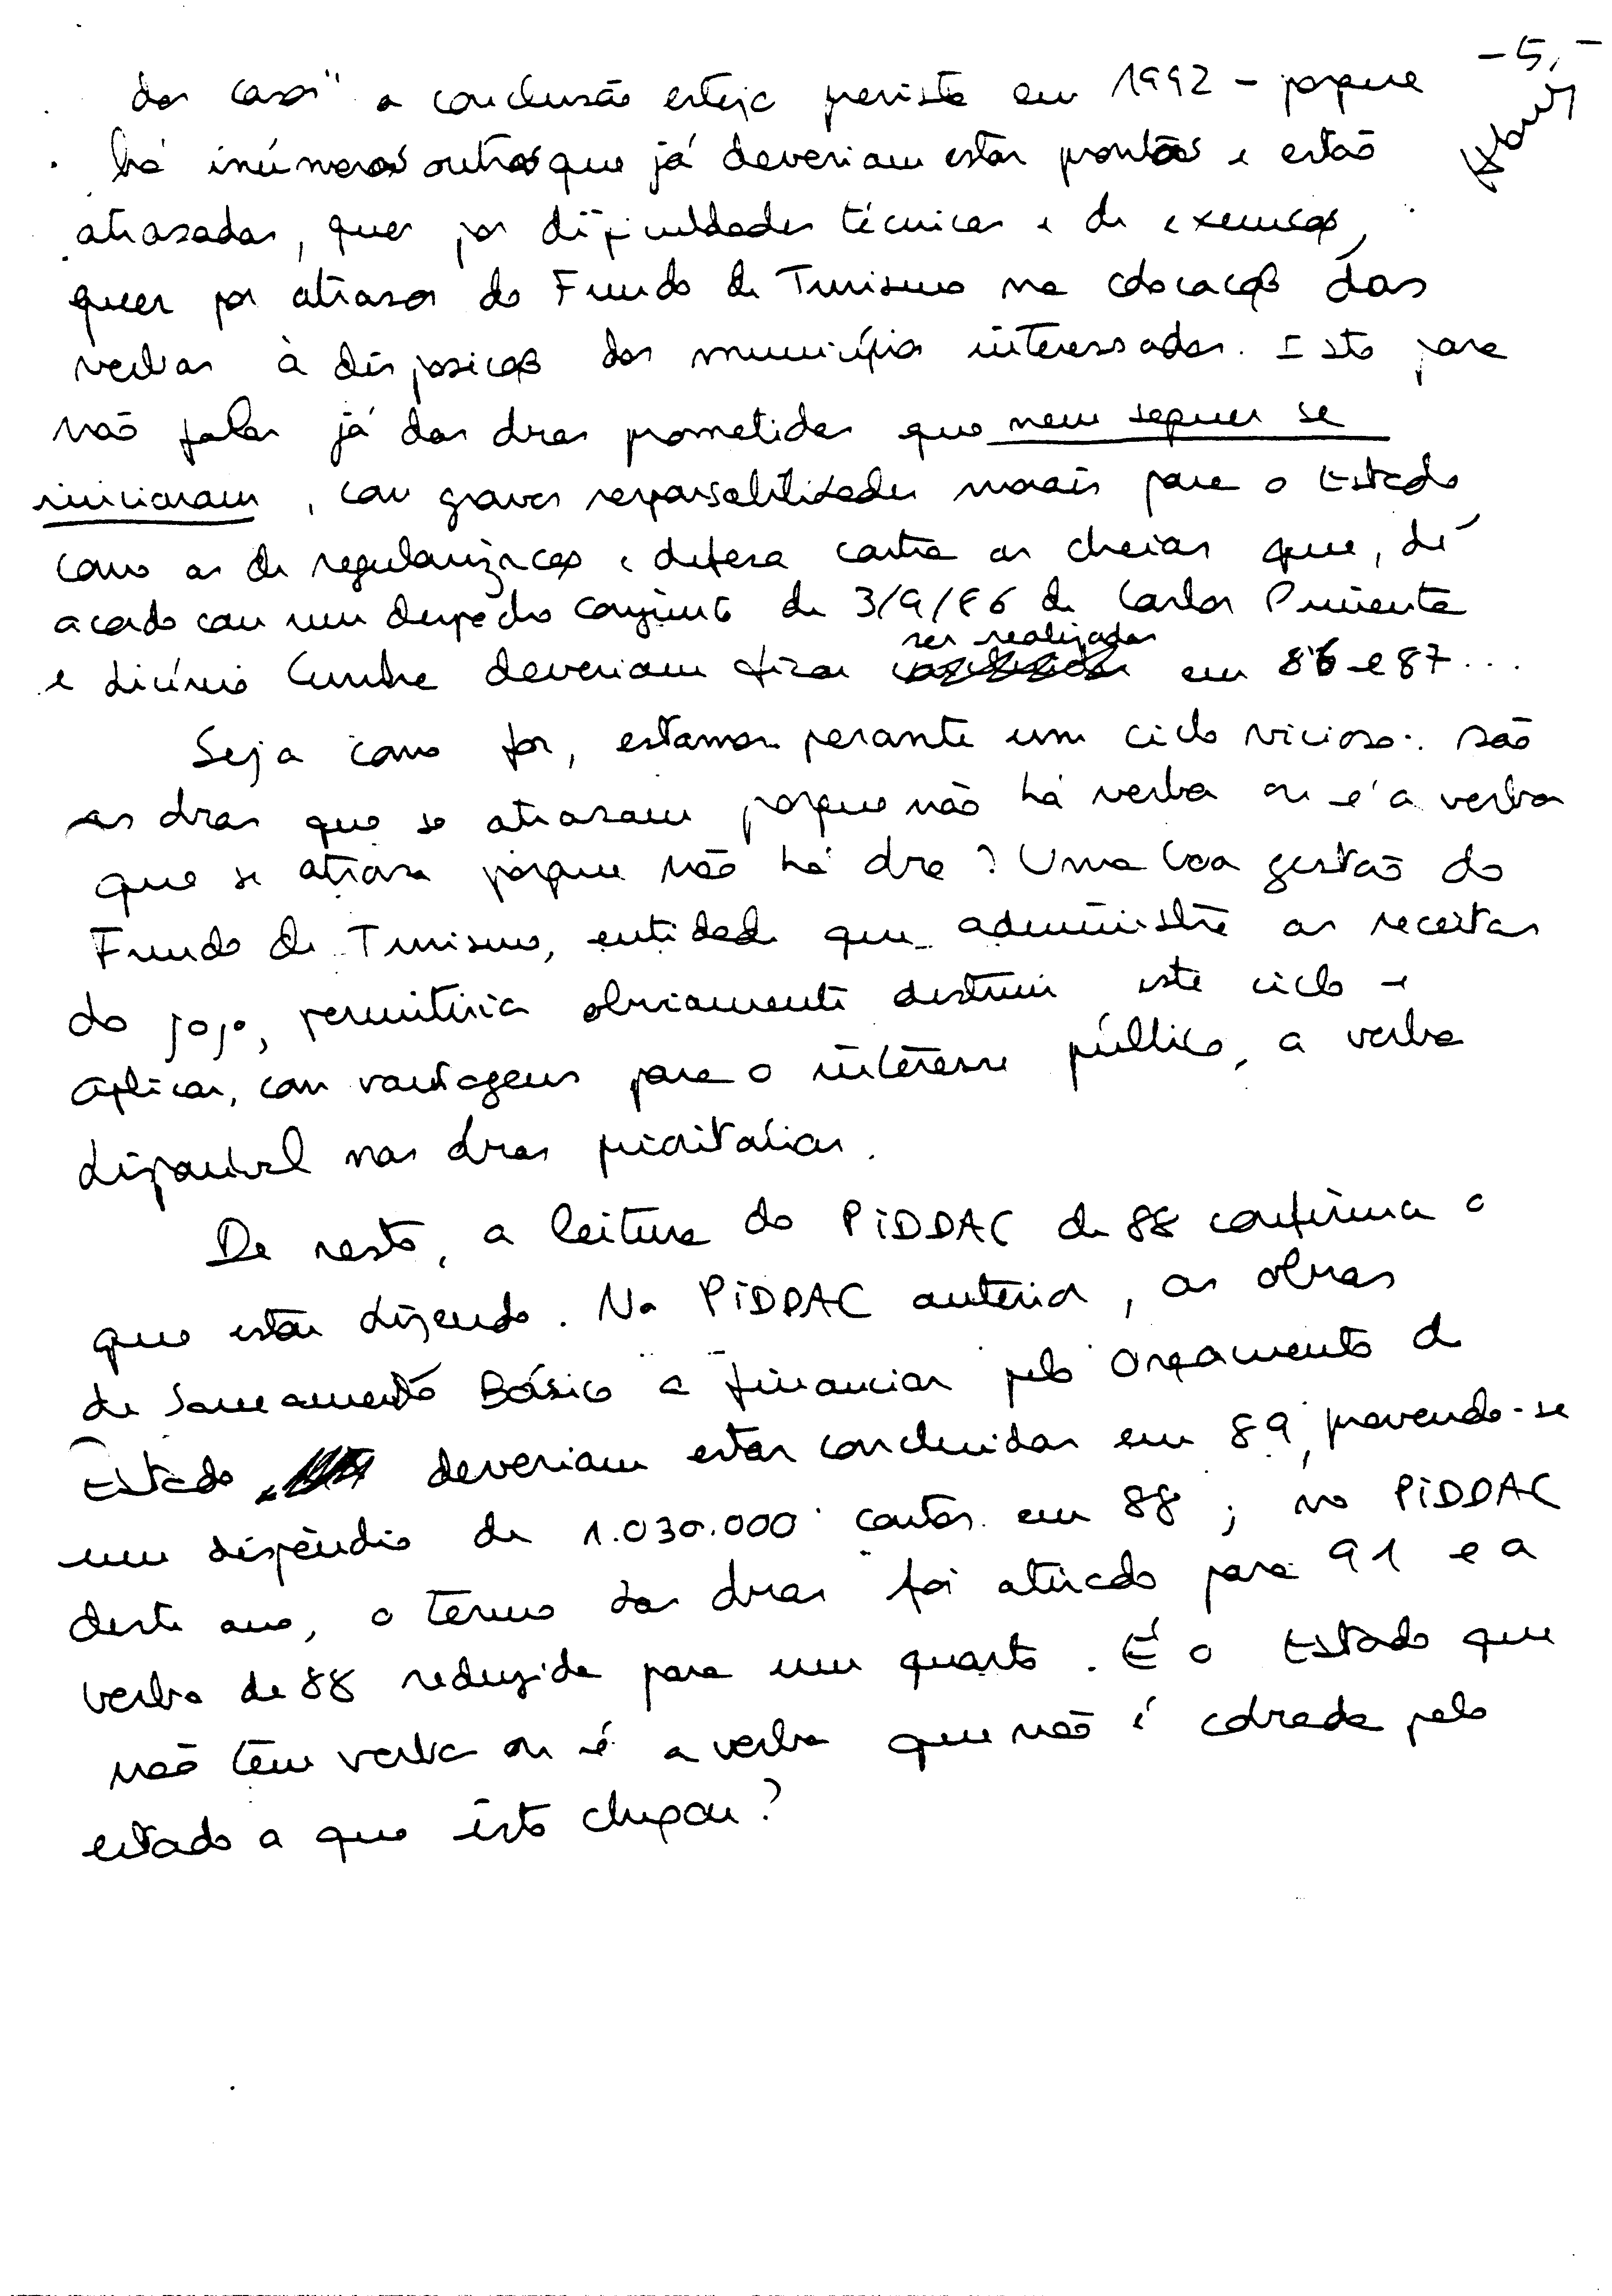 - 5, -
dos casos" a conclusão esteja prevista em 1992 - porque
há inúmeras outras que já deveriam estar prontas e estão
atrasadas, quer por dificuldades técnicas e de execução,
quer por atrasos do Fundo de Turismo na colocação das
verbas à disposição dos municípios interessados. Isto para
não falar já das obras prometidas que nem sequer se
iniciaram, com graves responsabilidades morais para o Estado
como as de regularização e defesa contra as cheias que, de
acordo com um despacho conjunto de 3/9/86 de Carlos Pimenta
ser realizadas
e Licínio Cunha deveriam ficar em 86 e 87...
Seja como for, estamos perante um ciclo vicioso: são
as obras que se atrasam porque não há verba ou é a verba
que se atrasa porque não há obra? Uma boa gestão do
Fundo de Turismo, entidade que administra as receitas
do jogo, permitiria obviamente destruir este ciclo e
aplicar, com vantagens para o interesse público, a verba
disponível nas obras prioritárias.
De resto, a leitura do PIDDAC de 88 confirma o
que estou dizendo. No PIDDAC anterior, as obras
de Saneamento Básico a financiar pelo Orçamento d
Estado deveriam estar concluidas em 89, prevendo-se
um dispêndio de 1.030.000 contos em 88; no PIDDAC
deste ano, o termo das obras foi atirado para 91 e a
verba de 88 reduzida para um quarto. É o Estado que
não têm verba ou é a verba que não é cobrada pelo
estado a que isto chegou?